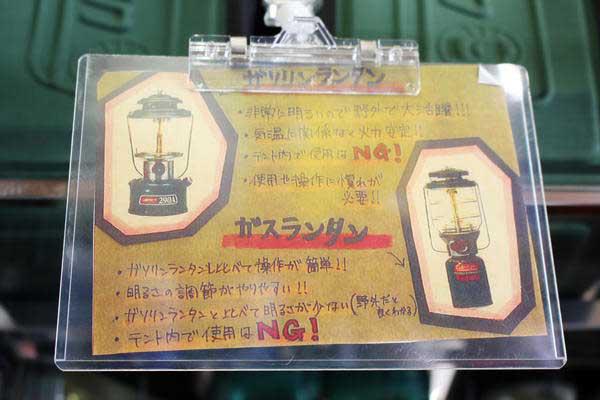 ガソリンランタン
・非常に明るいので野外で大活躍!!!
・気温に関係なく火力安定!!
・テント内で使用はNG!
・使用や操作に慣れが
必要!!
ガスランタン
・ガソリンランタンとくらべて操作が簡単!!
・明るさの調節がやりやすい!!
・ガソリンランタンとくらべて明るさが少ない(野外だと
良くわかる)
・テント内で使用はNG!